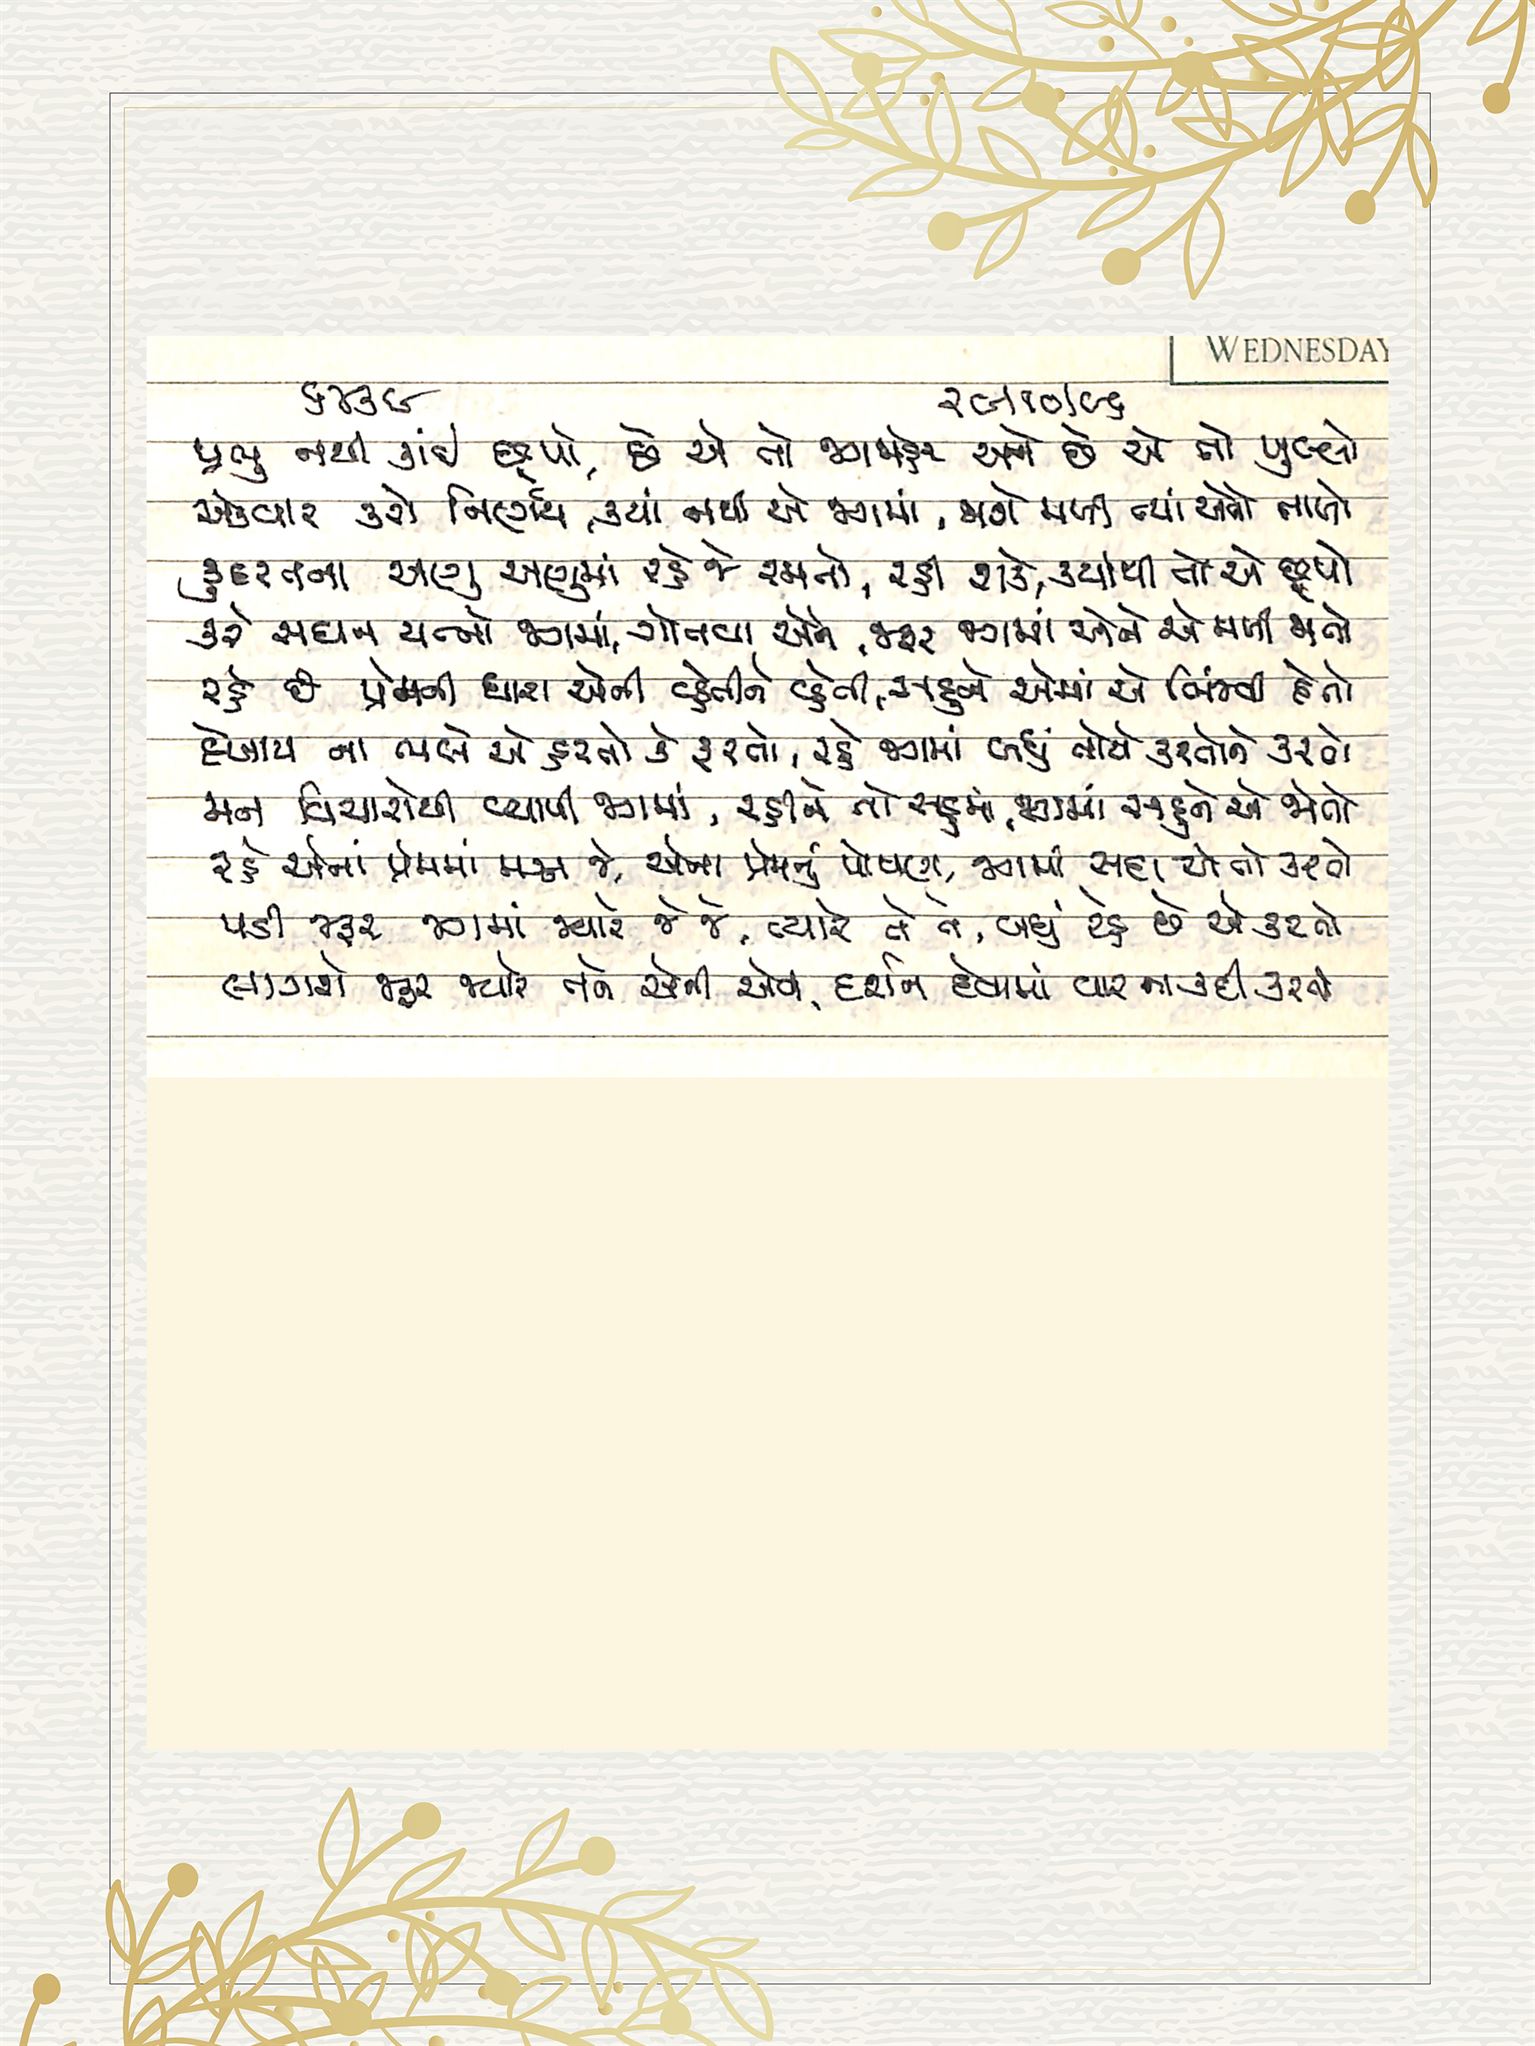 WEDNESDAY
૬૪૩૬ ૨૯।૧૦।૯૬
પ્રભુ નથી કાંઈ છૂપો, છે એ તો જગજાહેર અને છે એ તો ખુલ્લો
એકવાર કરો નિર્ણય, ક્યાં નથી એ જગમાં, જાશે મળી ત્યાં એનો તાળો
કુદરતના અણુ અણુમાં રહે જે રમતો, રહી શકે, ક્યાંથી તો એ છૂપો
કરે સઘન યત્નો જગમાં, ગોતવા એને, જરૂર જગમાં એને એ મળી જાતો
રહે છે પ્રેમની ધારા એની વ્હેતીને વ્હેતી, સહુને એમાં એ ભીંજવી દેતો
દેખાય ના ભલે એ હરતો કે ફરતો, રહે જગમાં બધું તોયે કરતોને કરતો
મન વિચારોથી વ્યાપી જગમાં, રહીને તો સહુમાં, જગમાં સહુને એ જોતો
રહે એનાં પ્રેમમાં મગ્ન જે, એના પ્રેમનું પોષણ, જગમાં સદા એ તો કરતો
પડી જરૂર જગમાં જ્યારે જે જે, ત્યારે તે તે, બધું રહે છે એ કરતો
લાગશે જરૂર જ્યારે તને એની એવી, દર્શન દેવામાં વાર ના કદી કરતો